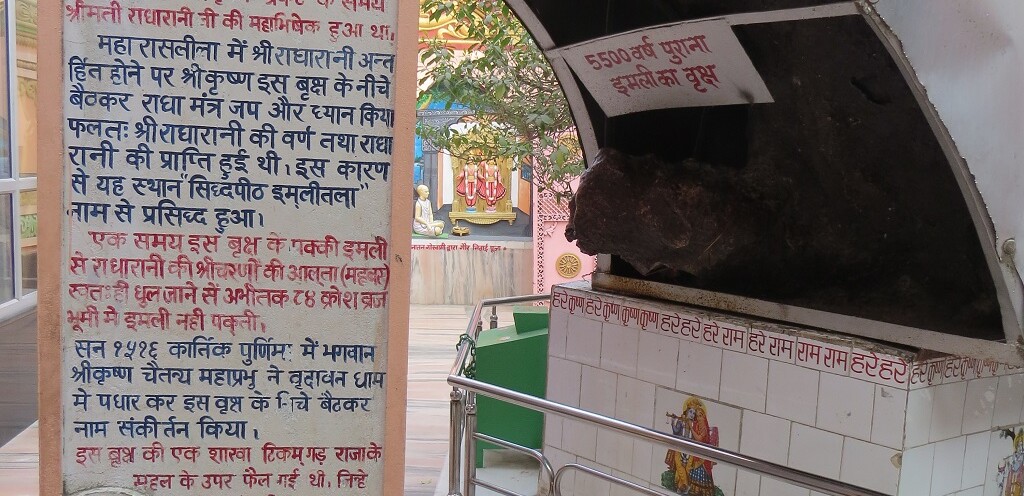 श्रीमती राधारानी जी की महाभिषेक हुआ था।
महा रासलीला में श्रीराधारानी अन्त
र्हित होने पर श्रीकृष्ण इस बृक्ष के नीचे
बैठकर राधा मंत्र जप और ध्यान किया
फलतः श्रीराधारानी की वर्ण तथा राधा
रानी की प्राप्ति हुई थी। इस कारण
से यह स्थान "सिध्दपीठ इम्लीतला"
नाम से प्रसिध्द हुआ।
एक समय इस बृक्ष के पक्की इमली
से राधारानी की श्रीचरणों की आल्ता (महावर)
स्वतः ही धूल जाने से अभीतक ८४ क्रोश ब्रज
भूमी में इमली नही पकती।
सन १५१६ कार्तिक पुर्णिमा में भगवान
श्रीकृष्ण चैतन्य महाप्रभु ने वृंदावन धाम
में पधार कर इस वृक्ष के निचे बैठकर
नाम संकीर्तन किया।
इस बृक्ष की एक शाखा टिकमगड़ राजाके
महल के उपर फैल गई थी, जिन्हे
5500 वर्ष पुराना
इमली का वृक्ष
हरे कृष्ण हरे कृष्ण कृष्ण कृष्ण हरे हरे हरे राम हरे राम राम राम हरे हरे